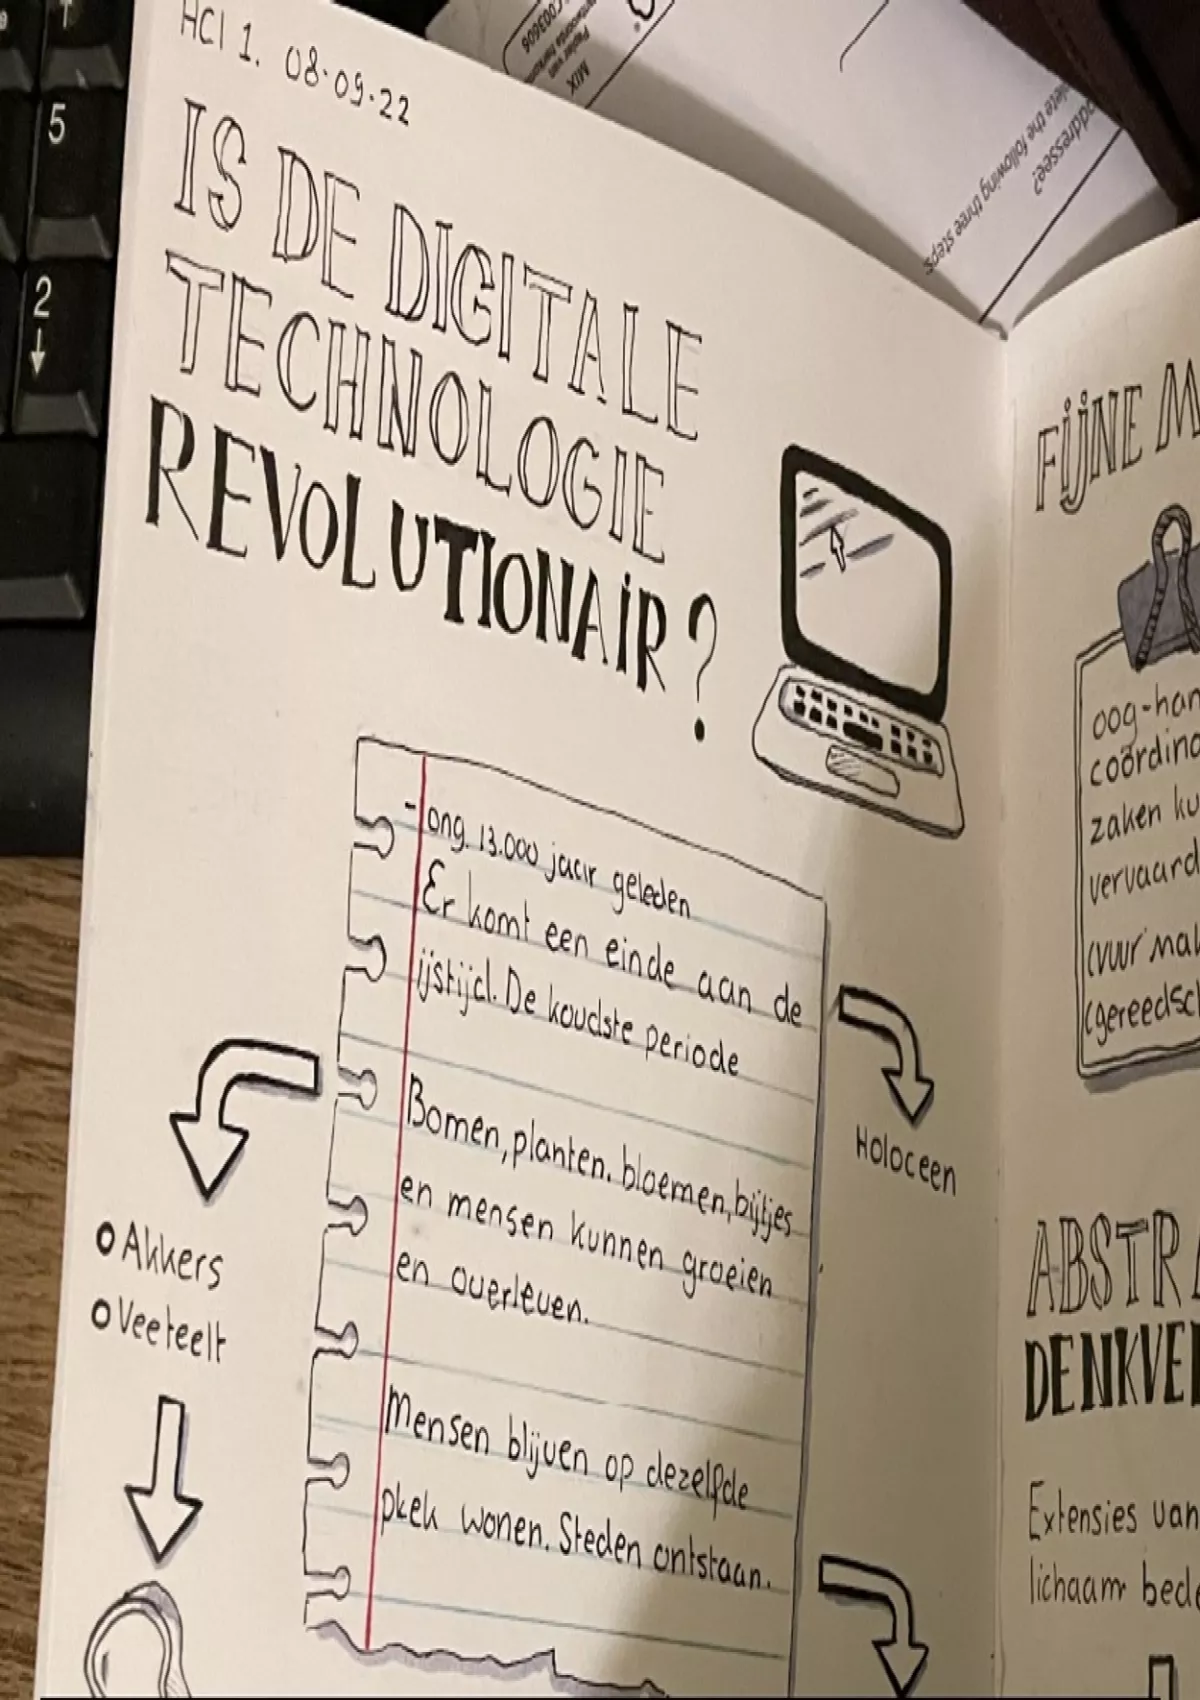 HCI 1. 08-09-22
IS DE DIGITALE
TECHNOLOGIE
REVOLUTIONAIR?
- ong. 13.000 jaar geleden
Er komt een einde aan de
ijstijd. De koudste periode
Bomen, planten. bloemen, bijtjes
en mensen kunnen groeien
en overleven.
Mensen blijven op dezelfde
plek wonen. Steden ontstaan.
Holoceen
o Akkers
o Veeteelt
FIJNE M
oog-han
coördina
zaken ku
vervaard
(vuur mak
(gereedsch
ABSTRA
DENKVE
Extensies van
lichaam bede
5
2
MIX
C003606
addressee?
lete the following three steps